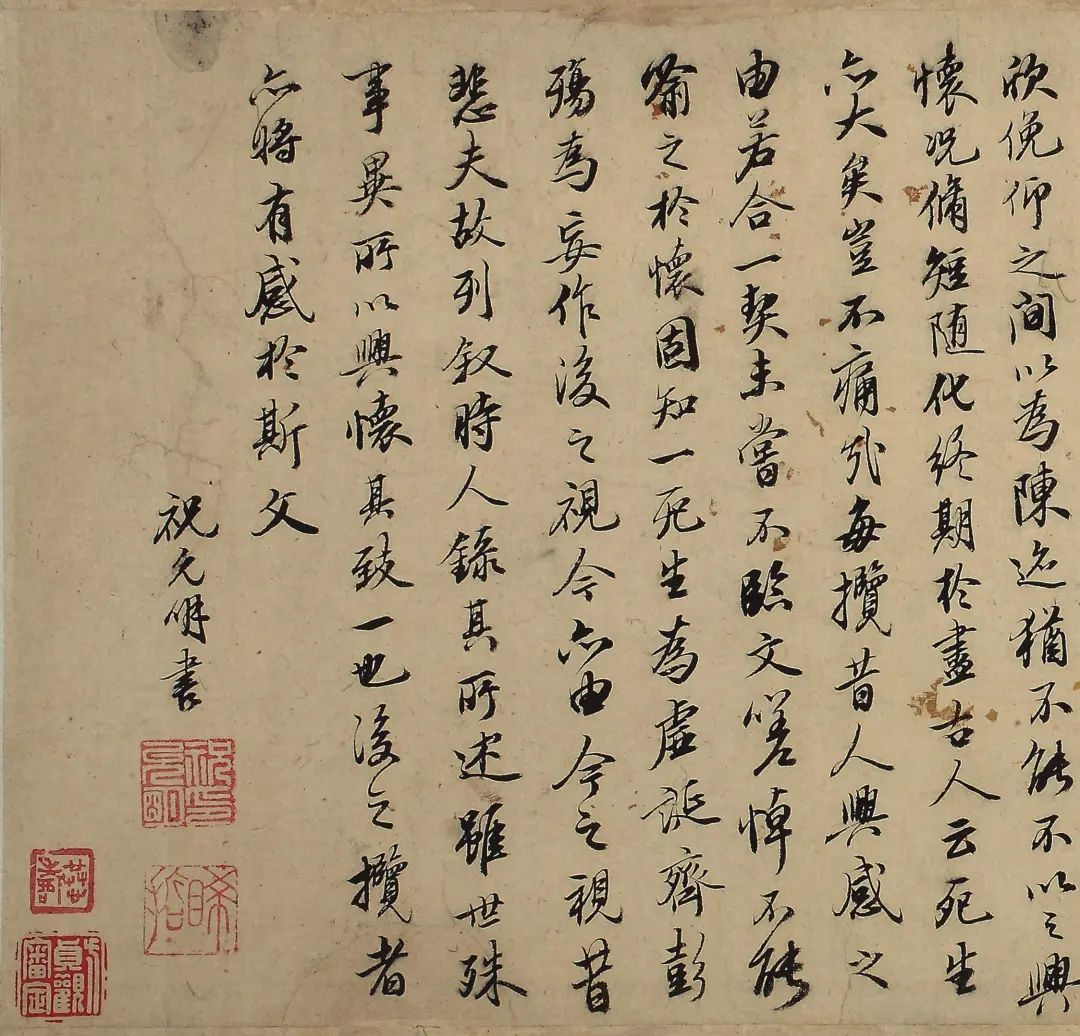 欣俛仰之間以為陳迹猶不能不以之興
懷况脩短随化終期於盡古人云死生
亦大矣豈不痛哉每攬昔人興感之
由若合一契未嘗不臨文嗟悼不能
喻之於懷固知一死生為虛誕齊彭
殤為妄作後之視今亦由今之視昔
悲夫故列叙時人錄其所述雖世殊
事異所以興懷其致一也後之攬者
亦將有感於斯文
祝允明書
祝允明印